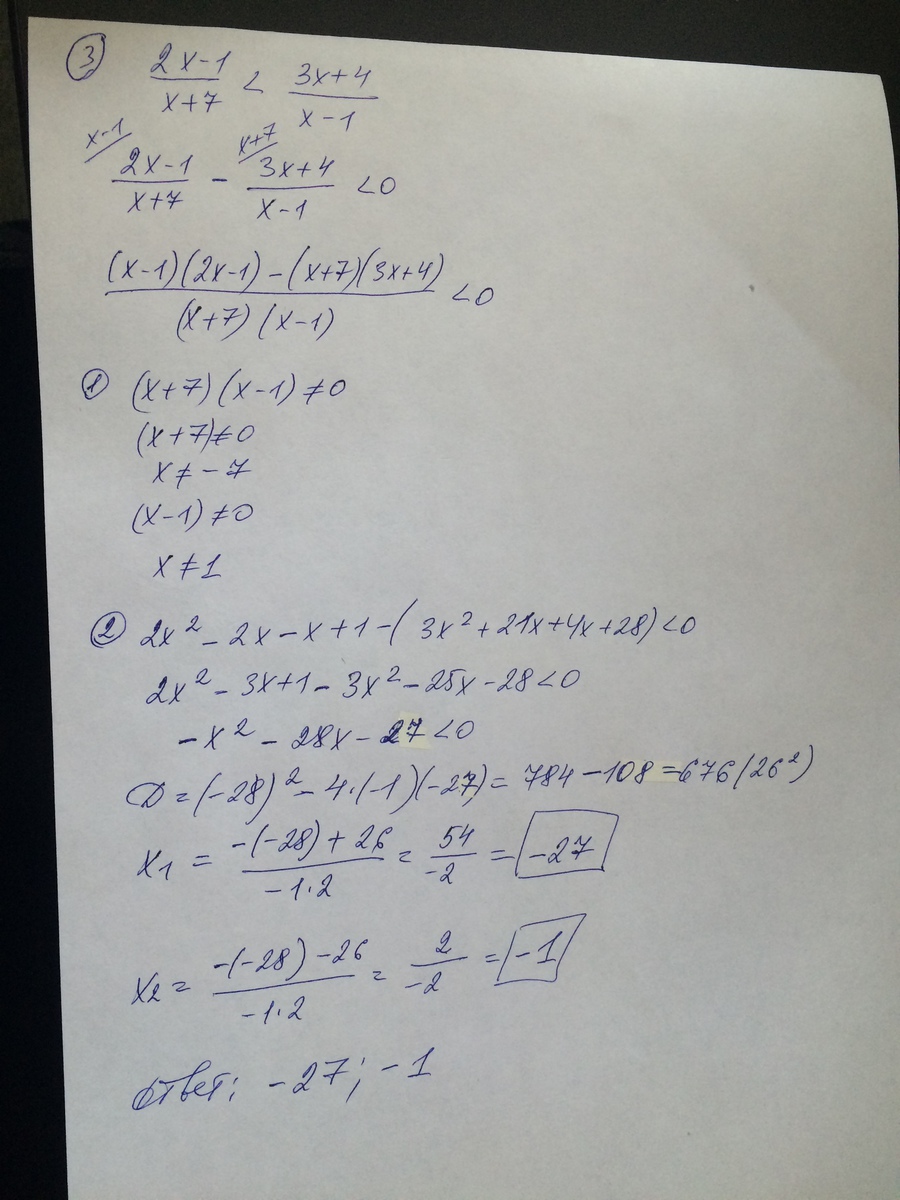 ③ (2x-1)/(x+7) < (3x+4)/(x-1)
x-1/ (2x-1)/(x+7) - x+7/ (3x+4)/(x-1) <0
((x-1)(2x-1)-(x+7)(3x+4))/((x+7)(x-1)) <0
① (x+7)(x-1)≠0
(x+7)≠0
x≠-7
(x-1)≠0
x≠1
② 2x²-2x-x+1-(3x²+21x+4x+28)<0
2x²-3x+1-3x²-25x-28<0
-x²-28x-27<0
D=(-28)²-4·(-1)(-27)=784-108=676(26²)
x₁ = (-(-28)+26)/(-1·2) = 54/-2 = -27
x₂ = (-(-28)-26)/(-1·2) = 2/-2 = -1
Ответ: -27; -1